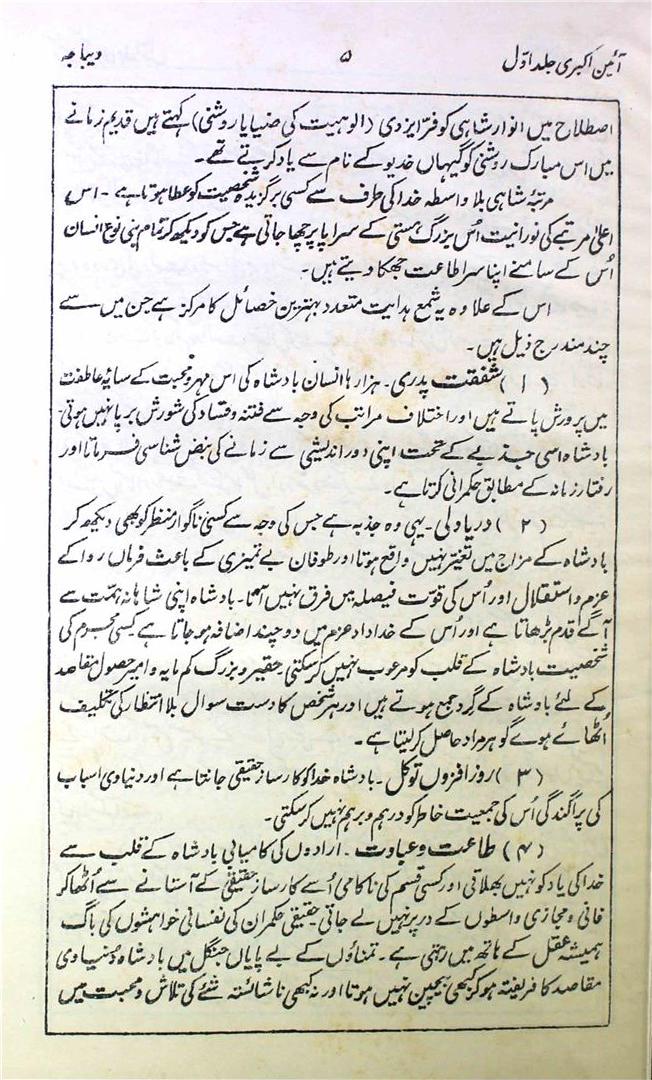 آئین اکبری جلد اوّل
۵
دیباچہ
اصطلاح میں انوار شاہی کو فرّ ایزدی (الوہیت کی ضیا یا روشنی) کہتے ہیں قدیم زمانے
میں اس مبارک روشنی کو گیہاں خدیو کے نام سے یاد کرتے تھے۔
مرتبۂ شاہی بلا واسطہ خدا کی طرف سے کسی برگزیدہ شخصیت کو عطا ہوتا ہے ۔ اس
اعلیٰ مرتبے کی نورانیت اُس بزرگ ہستی کے سراپا پر چھا جاتی ہے جس کو دیکھ کر تمام بنی نوع انسان
اُس کے سامنے اپنا سر اطاعت جھکا دیتے ہیں۔
اس کے علاوہ یہ شمع ہدایت متعدد بہترین خصائل کا مرکز ہے جن میں سے
چند مندرج ذیل ہیں۔
(۱) شفقت پدری۔ ہزارہا انسان بادشاہ کی اس مہر و محبت کے سایۂ عاطفت
میں پرورش پاتے ہیں اور اختلاف مراتب کی وجہ سے فتنہ و فساد کی شورش برپا نہیں ہوتی۔
بادشاہ اسی جذبے کے تحت اپنی دور اندیشی سے زمانے کی نبض شناسی فرماتا اور
رفتار زمانہ کے مطابق حکمرانی کرتا ہے۔
(۲) دریا دلی۔ یہی وہ جذبہ ہے جس کی وجہ سے کسی ناگوار منظر کو بھی دیکھ کر
بادشاہ کے مزاج میں تغیّر نہیں واقع ہوتا اور طوفان بے تمیزی کے باعث فرماں روا کے
عزم و استقلال اور اُس کی قوّت فیصلہ میں فرق نہیں آتا۔ بادشاہ اپنی شاہانہ ہمّت سے
آگے قدم بڑھاتا ہے اور اُس کے خداداد عزم میں دو چند اضافہ ہو جاتا ہے کسی مجرم کی
شخصیت بادشاہ کے قلب کو مرعوب نہیں کرسکتی۔ حقیر و بزرگ کم مایہ و امیر حصول مقاصد
کے لئے بادشاہ کے گرد جمع ہوتے ہیں اور ہر شخص کا دست سوال بلا انتظار کی تکلیف
اُٹھائے ہوے گوہر مراد حاصل کرلیتا ہے۔
(۳) روز افزوں توکل۔ بادشاہ خدا کو کارساز حقیقی جانتا ہے اور دنیاوی اسباب
کی پراگندگی اُس کی جمعیت خاطر کو درہم و برہم نہیں کرسکتی۔
(۴) طاعت و عبادت ۔ ارادوں کی کامیابی بادشاہ کے قلب سے
خدا کی یاد کو نہیں بھلاتی اور کسی قسم کی ناکامی اُسے کارساز حقیقی کے آستانے سے اُٹھا کر
فانی و مجازی واسطوں کے در پر نہیں لے جاتی۔ حقیقی حکمران کی نفسانی خواہشوں کی باگ
ہمیشہ عقل کے ہاتھ میں رہتی ہے۔ تمناؤں کے بے پایاں جنگل میں بادشاہ دُنیاوی
مقاصد کا فریفتہ ہو کر کبھی بیچین نہیں ہوتا اور نہ کبھی ناشائستہ شئے کی تلاش و محبت میں